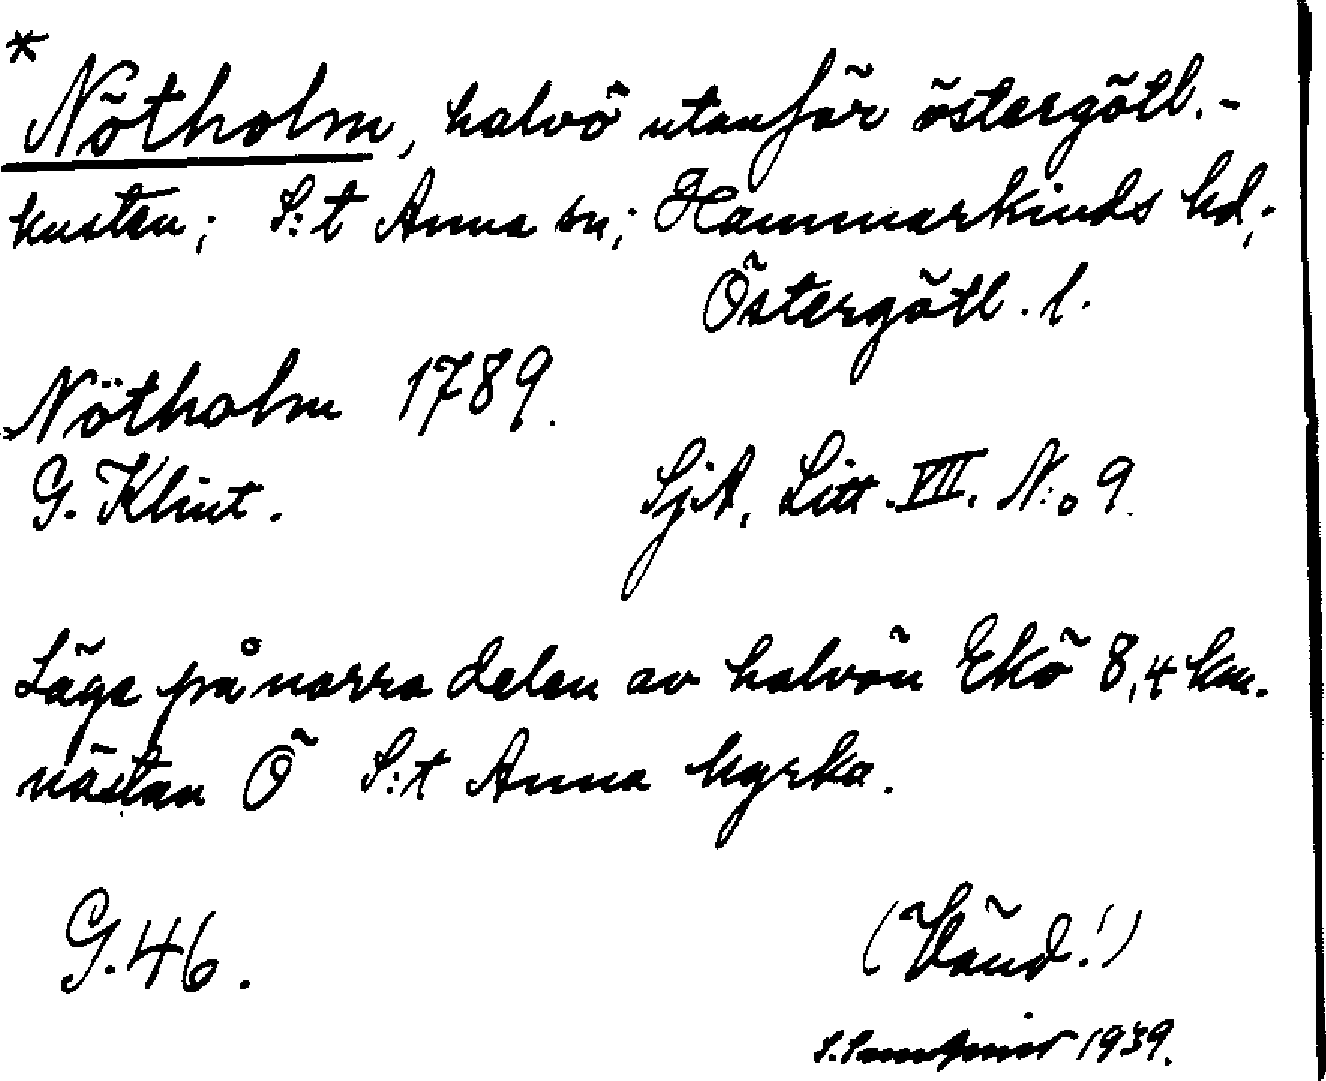 *
Nötholm, halvö utanför östergötl.-
kusten; S:t Anna sn; Hammarkinds hd;
Östergötl. l.
Nötholm 1789.
G. Klint. SjA. Litt. VII. N:o 9.
Läge på norra delen av halvön Ekö 8,4 km.
nästan Ö S:t Anna kyrka.
G.46. (Vänd!)
1939.